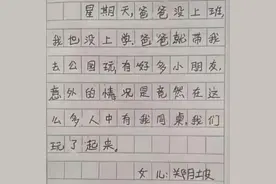 星期天,爸爸没上班,
我也没上学,爸爸就带我
去公园玩有好多小朋友,
意外的情况是竟然在这
么多人中有我同桌,我们
玩了起来。
女儿:郑月坡